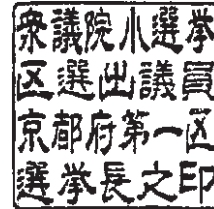 衆議院小選挙
区選出議員
京都府第一区
選挙長之印